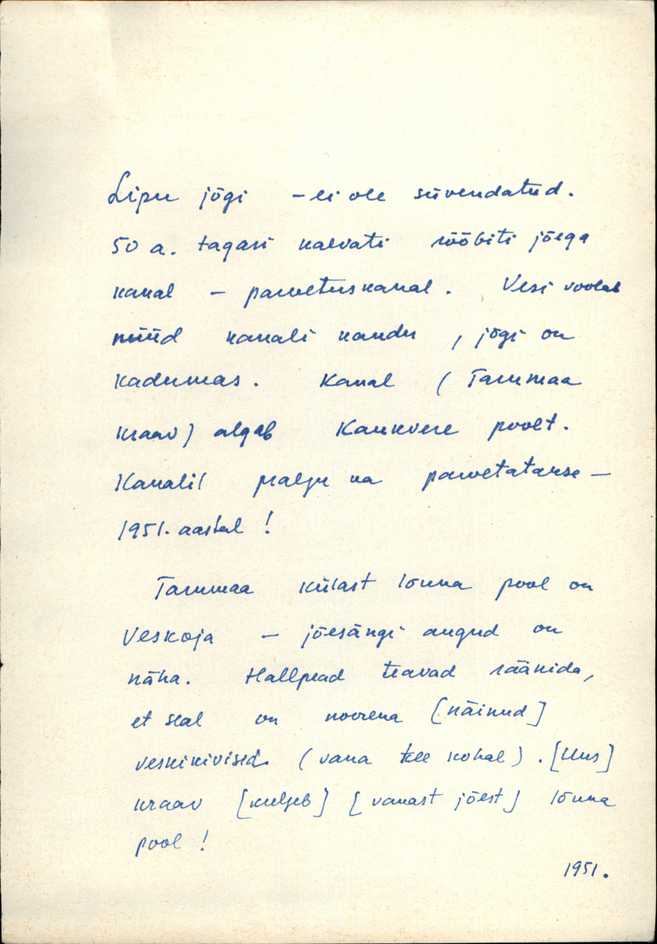 Lipu jõgi – ei ole süvendatud.
50 a. tagasi kaevati rööbiti jõega
kanal – parvetuskanal. Vesi voolab
nüüd kanali kaudu, jõgi on
kadumas. Kanal (Tammaa
kraav) algab Kaukvere poolt.
Kanalil palju ka parvetatakse –
1951. aastal!
Tammaa külast lõuna pool on
Veskoja – jõesängi augud on
näha. Hallpead teavad rääkida,
et seal on noorena [näinud]
veskikivised (vana tee kohal). [Uus]
kraav [kulgeb] [vanast jõest] lõuna
pool!
1951.